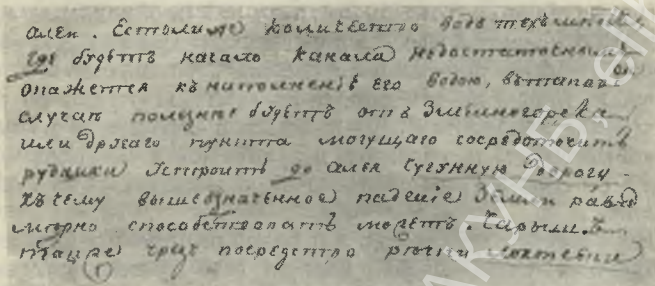 алеи. Естьлиже количество водъ техъ местъ,
где будетъ начало канала недостаточнымъ
окажется къ наполнению его водою, въ таковомъ
случаи полезнее будетъ отъ Змеиногорска
или другаго пункта могущаго сосредоточить
рудники устроить до алея Чугунную дорогу
къ чему вышеозначенное падение Земли равно
мерно способствовать можетъ. Чарышъ
также чрезъ посредство речки локтевки